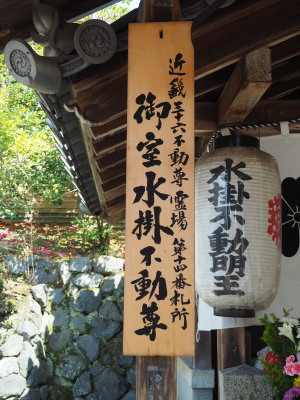 近畿三十六不動尊霊場 第十四番札所
御室水掛不動尊
水掛不動明王